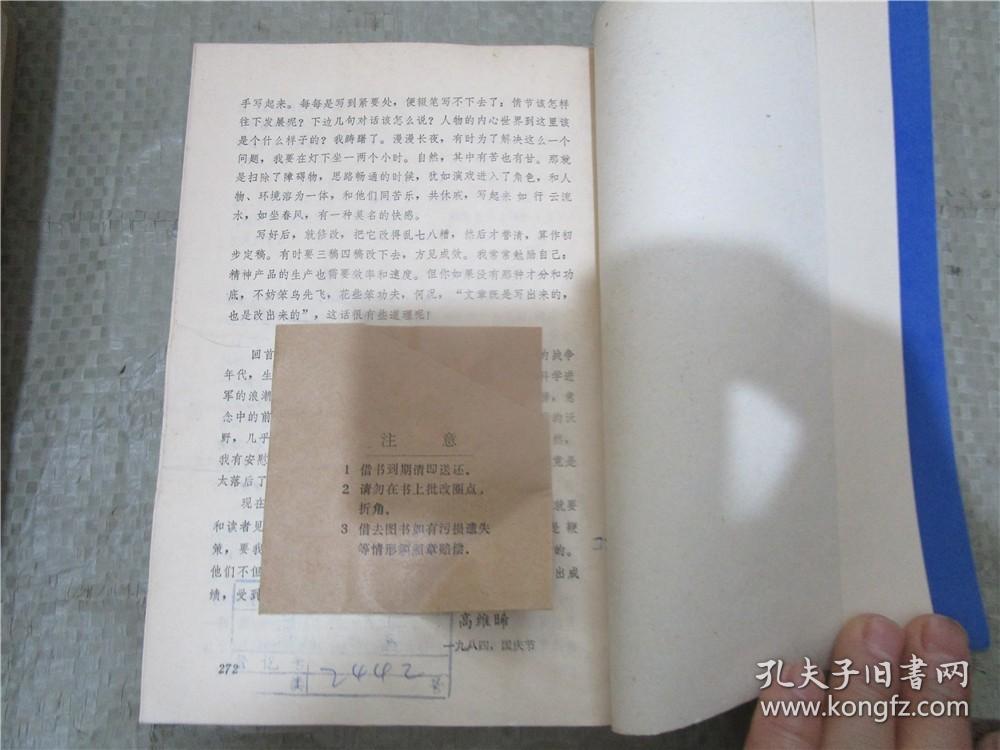 手写起来。每每是写到紧要处，便辍笔写不下去了：情节该怎样
往下发展呢？下边几句对话该怎么说？人物的内心世界到这里该
是个什么样子的？我踌躇了。漫漫长夜，有时为了解决这么一个
问题，我要在灯下坐一两个小时。自然，其中有苦也有甘。那就
是扫除了障碍物，思路畅通的时候，犹如演戏进入了角色，和人
物、环境溶为一体，和他们同苦乐，共休戚，写起来如行云流
水，如坐春风，有一种莫名的快感。
写好后，就修改，把它改得乱七八糟，然后才誊清，算作初
步定稿。有时要三稿四稿改下去，方见成效。我常常勉励自己：
精神产品的生产也需要效率和速度。但你如果没有那种才分和功
底，不妨笨鸟先飞，花些笨功夫，何况，“文章既是写出来的，
也是改出来的”，这话很有些道理呢！
回首 的战争
年代，生 科学进
军的浪潮
念中的前 的沃
野，几乎 然，
我有安慰 竟是
太落后了
现在 就要
和读者见 是鞭
策，要我 的。
他们不但 出成
绩，受到
注 意
1 借书到期请即送还。
2 请勿在书上批改圈点，
折角。
3 借去图书如有污损遗失
等情形须照章赔偿。
高维晞
一九八四，国庆节
272
2442
孔夫子旧书网
www.kongfz.com